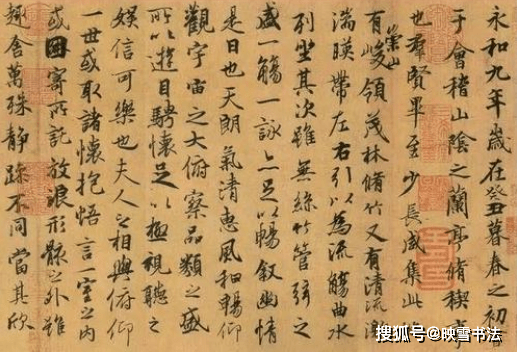 永和九年歲在癸丑暮春之初會
于會稽山陰之蘭亭脩稧事
也羣賢畢至少長咸集此
有崇山峻領茂林脩竹又有清流激
湍暎帶左右引以為流觴曲水
列坐其次雖無絲竹管弦之
盛一觴一詠亦足以暢叙幽情
是日也天朗氣清惠風和暢仰
觀宇宙之大俯察品類之盛
所以遊目騁懷足以極視聽之
娛信可樂也夫人之相與俯仰
一世或取諸懷抱悟言一室之內
或因寄所託放浪形骸之外雖
趣舍萬殊静躁不同當其欣
搜狐号@映雪书法